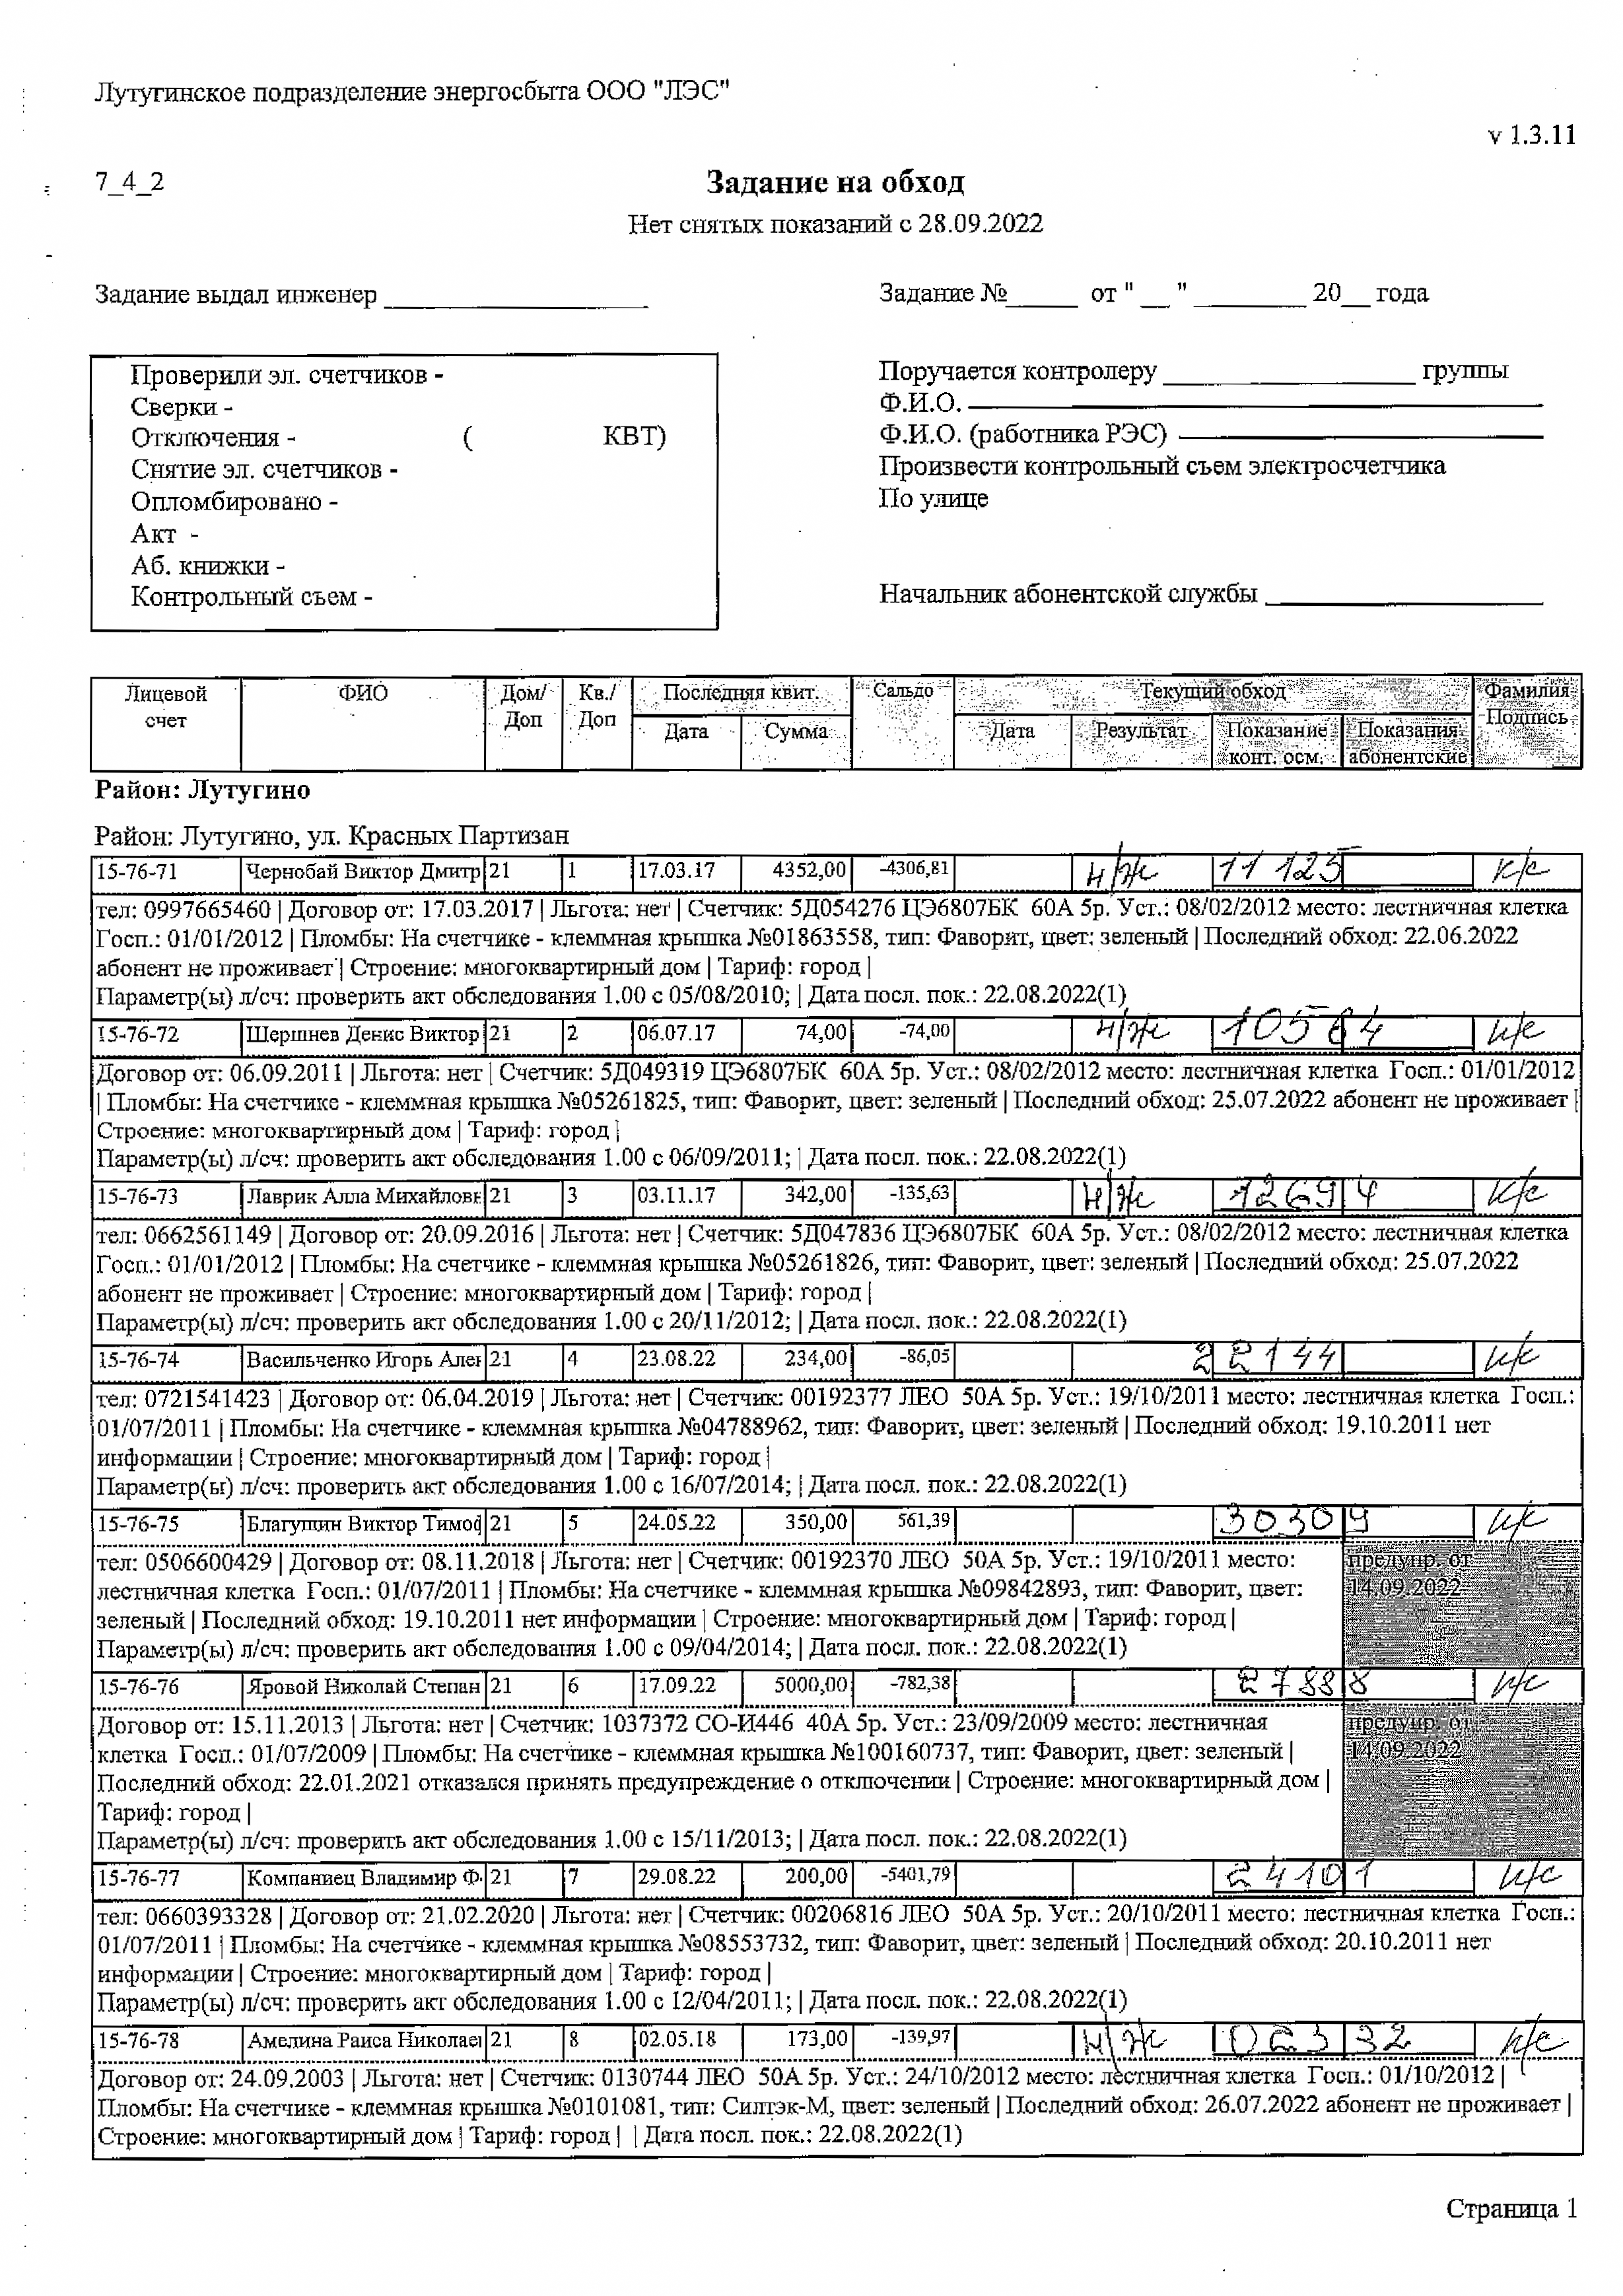 Лутугинское подразделение энергосбыта ООО "ЛЭС"
v 1.3.11
7_4_2
Задание на обход
Нет снятых показаний с 28.09.2022
Задание выдал инженер ____________________
Задание №_____ от " __ " ________ 20__ года
Проверили эл. счетчиков -
Сверки -
Отключения - ( КВТ)
Снятие эл. счетчиков -
Опломбировано -
Акт -
Аб. книжки -
Контрольный съем -
Поручается контролеру ____________________ группы
Ф.И.О.
Ф.И.О. (работника РЭС)
Произвести контрольный съем электросчетчика
По улице
Начальник абонентской службы ____________________
Лицевой счет ФИО Дом/ Доп Кв./ Доп Последняя квит. Дата Сумма Сальдо Текущий обход Дата Результат Показание конт. осм. Показания абонентские Фамилия Подпись
Район: Лутугино
Район: Лутугино, ул. Красных Партизан
15-76-71 Чернобай Виктор Дмитр 21 1 17.03.17 4352,00 -4306,81 н/ж 11125 к/с
тел: 0997665460 | Договор от: 17.03.2017 | Льгота: нет | Счетчик: 5Д054276 ЦЭ6807БК 60А 5р. Уст.: 08/02/2012 место: лестничная клетка
Госп.: 01/01/2012 | Пломбы: На счетчике - клеммная крышка №01863558, тип: Фаворит, цвет: зеленый | Последний обход: 22.06.2022
абонент не проживает | Строение: многоквартирный дом | Тариф: город |
Параметр(ы) л/сч: проверить акт обследования 1.00 с 05/08/2010; | Дата посл. пок.: 22.08.2022(1)
15-76-72 Шершнев Денис Виктор 21 2 06.07.17 74,00 -74,00 н/ж 10564 к/с
Договор от: 06.09.2011 | Льгота: нет | Счетчик: 5Д049319 ЦЭ6807БК 60А 5р. Уст.: 08/02/2012 место: лестничная клетка Госп.: 01/01/2012
| Пломбы: На счетчике - клеммная крышка №05261825, тип: Фаворит, цвет: зеленый | Последний обход: 25.07.2022 абонент не проживает |
Строение: многоквартирный дом | Тариф: город |
Параметр(ы) л/сч: проверить акт обследования 1.00 с 06/09/2011; | Дата посл. пок.: 22.08.2022(1)
15-76-73 Лаврик Алла Михайловн 21 3 03.11.17 342,00 -135,63 н/ж 12694 к/с
тел: 0662561149 | Договор от: 20.09.2016 | Льгота: нет | Счетчик: 5Д047836 ЦЭ6807БК 60А 5р. Уст.: 08/02/2012 место: лестничная клетка
Госп.: 01/01/2012 | Пломбы: На счетчике - клеммная крышка №05261826, тип: Фаворит, цвет: зеленый | Последний обход: 25.07.2022
абонент не проживает | Строение: многоквартирный дом | Тариф: город |
Параметр(ы) л/сч: проверить акт обследования 1.00 с 20/11/2012; | Дата посл. пок.: 22.08.2022(1)
15-76-74 Васильченко Игорь Алек 21 4 23.08.22 234,00 -86,05 22144 к/с
тел: 0721541423 | Договор от: 06.04.2019 | Льгота: нет | Счетчик: 00192377 ЛЕО 50А 5р. Уст.: 19/10/2011 место: лестничная клетка Госп.:
01/07/2011 | Пломбы: На счетчике - клеммная крышка №04788962, тип: Фаворит, цвет: зеленый | Последний обход: 19.10.2011 нет
информации | Строение: многоквартирный дом | Тариф: город |
Параметр(ы) л/сч: проверить акт обследования 1.00 с 16/07/2014; | Дата посл. пок.: 22.08.2022(1)
15-76-75 Благушин Виктор Тимоф 21 5 24.05.22 350,00 561,39 30309 к/с
тел: 0506600429 | Договор от: 08.11.2018 | Льгота: нет | Счетчик: 00192370 ЛЕО 50А 5р. Уст.: 19/10/2011 место: предупр. от
лестничная клетка Госп.: 01/07/2011 | Пломбы: На счетчике - клеммная крышка №09842893, тип: Фаворит, цвет: 14.09.2022
зеленый | Последний обход: 19.10.2011 нет информации | Строение: многоквартирный дом | Тариф: город |
Параметр(ы) л/сч: проверить акт обследования 1.00 с 09/04/2014; | Дата посл. пок.: 22.08.2022(1)
15-76-76 Яровой Николай Степан 21 6 17.09.22 5000,00 -782,38 27888 к/с
Договор от: 15.11.2013 | Льгота: нет | Счетчик: 1037372 СО-И446 40А 5р. Уст.: 23/09/2009 место: лестничная предупр. от
клетка Госп.: 01/07/2009 | Пломбы: На счетчике - клеммная крышка №100160737, тип: Фаворит, цвет: зеленый | 14.09.2022
Последний обход: 22.01.2021 отказался принять предупреждение о отключении | Строение: многоквартирный дом |
Тариф: город |
Параметр(ы) л/сч: проверить акт обследования 1.00 с 15/11/2013; | Дата посл. пок.: 22.08.2022(1)
15-76-77 Компаниец Владимир Ф. 21 7 29.08.22 200,00 -5401,79 24101 к/с
тел: 0660393328 | Договор от: 21.02.2020 | Льгота: нет | Счетчик: 00206816 ЛЕО 50А 5р. Уст.: 20/10/2011 место: лестничная клетка Госп.:
01/07/2011 | Пломбы: На счетчике - клеммная крышка №08553732, тип: Фаворит, цвет: зеленый | Последний обход: 20.10.2011 нет
информации | Строение: многоквартирный дом | Тариф: город |
Параметр(ы) л/сч: проверить акт обследования 1.00 с 12/04/2011; | Дата посл. пок.: 22.08.2022(1)
15-76-78 Амелина Раиса Николаев 21 8 02.05.18 173,00 -139,97 н/ж к/с
Договор от: 24.09.2003 | Льгота: нет | Счетчик: 0130744 ЛЕО 50А 5р. Уст.: 24/10/2012 место: лестничная клетка Госп.: 01/10/2012 |
Пломбы: На счетчике - клеммная крышка №0101081, тип: Силтэк-М, цвет: зеленый | Последний обход: 26.07.2022 абонент не проживает |
Строение: многоквартирный дом | Тариф: город | | Дата посл. пок.: 22.08.2022(1)
Страница 1